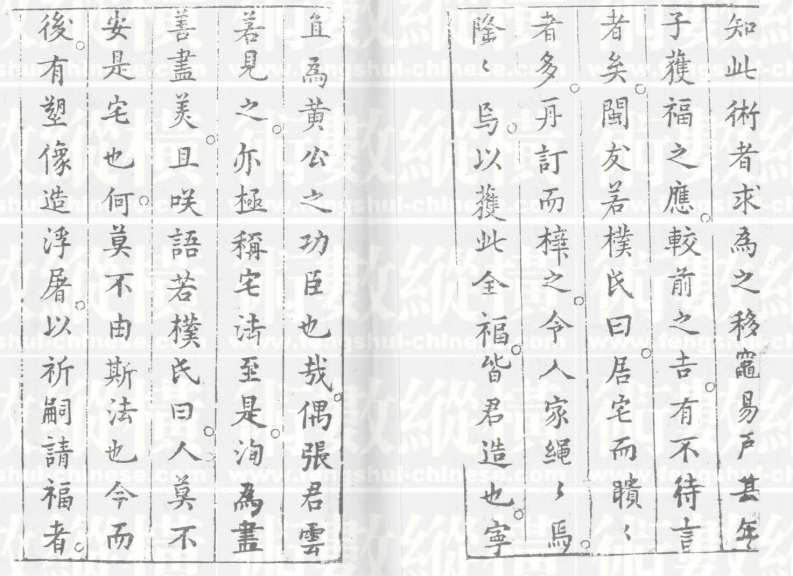 知此術者求為之移竈易戶甚年
子獲福之應較前之吉有不待言
者矣閩友若樸氏曰居宅而瞶〻
者多再訂而梓之令人家繩〻焉
隆〻烏以獲此全福皆君造也寧
直為黃公之功臣也哉偶張君雲
若見之亦極稱宅法至是洵為盡
善盡美且咲語若樸氏曰人莫不
安是宅也何莫不由斯法也今而
後有塑像造浮屠以祈嗣請福者